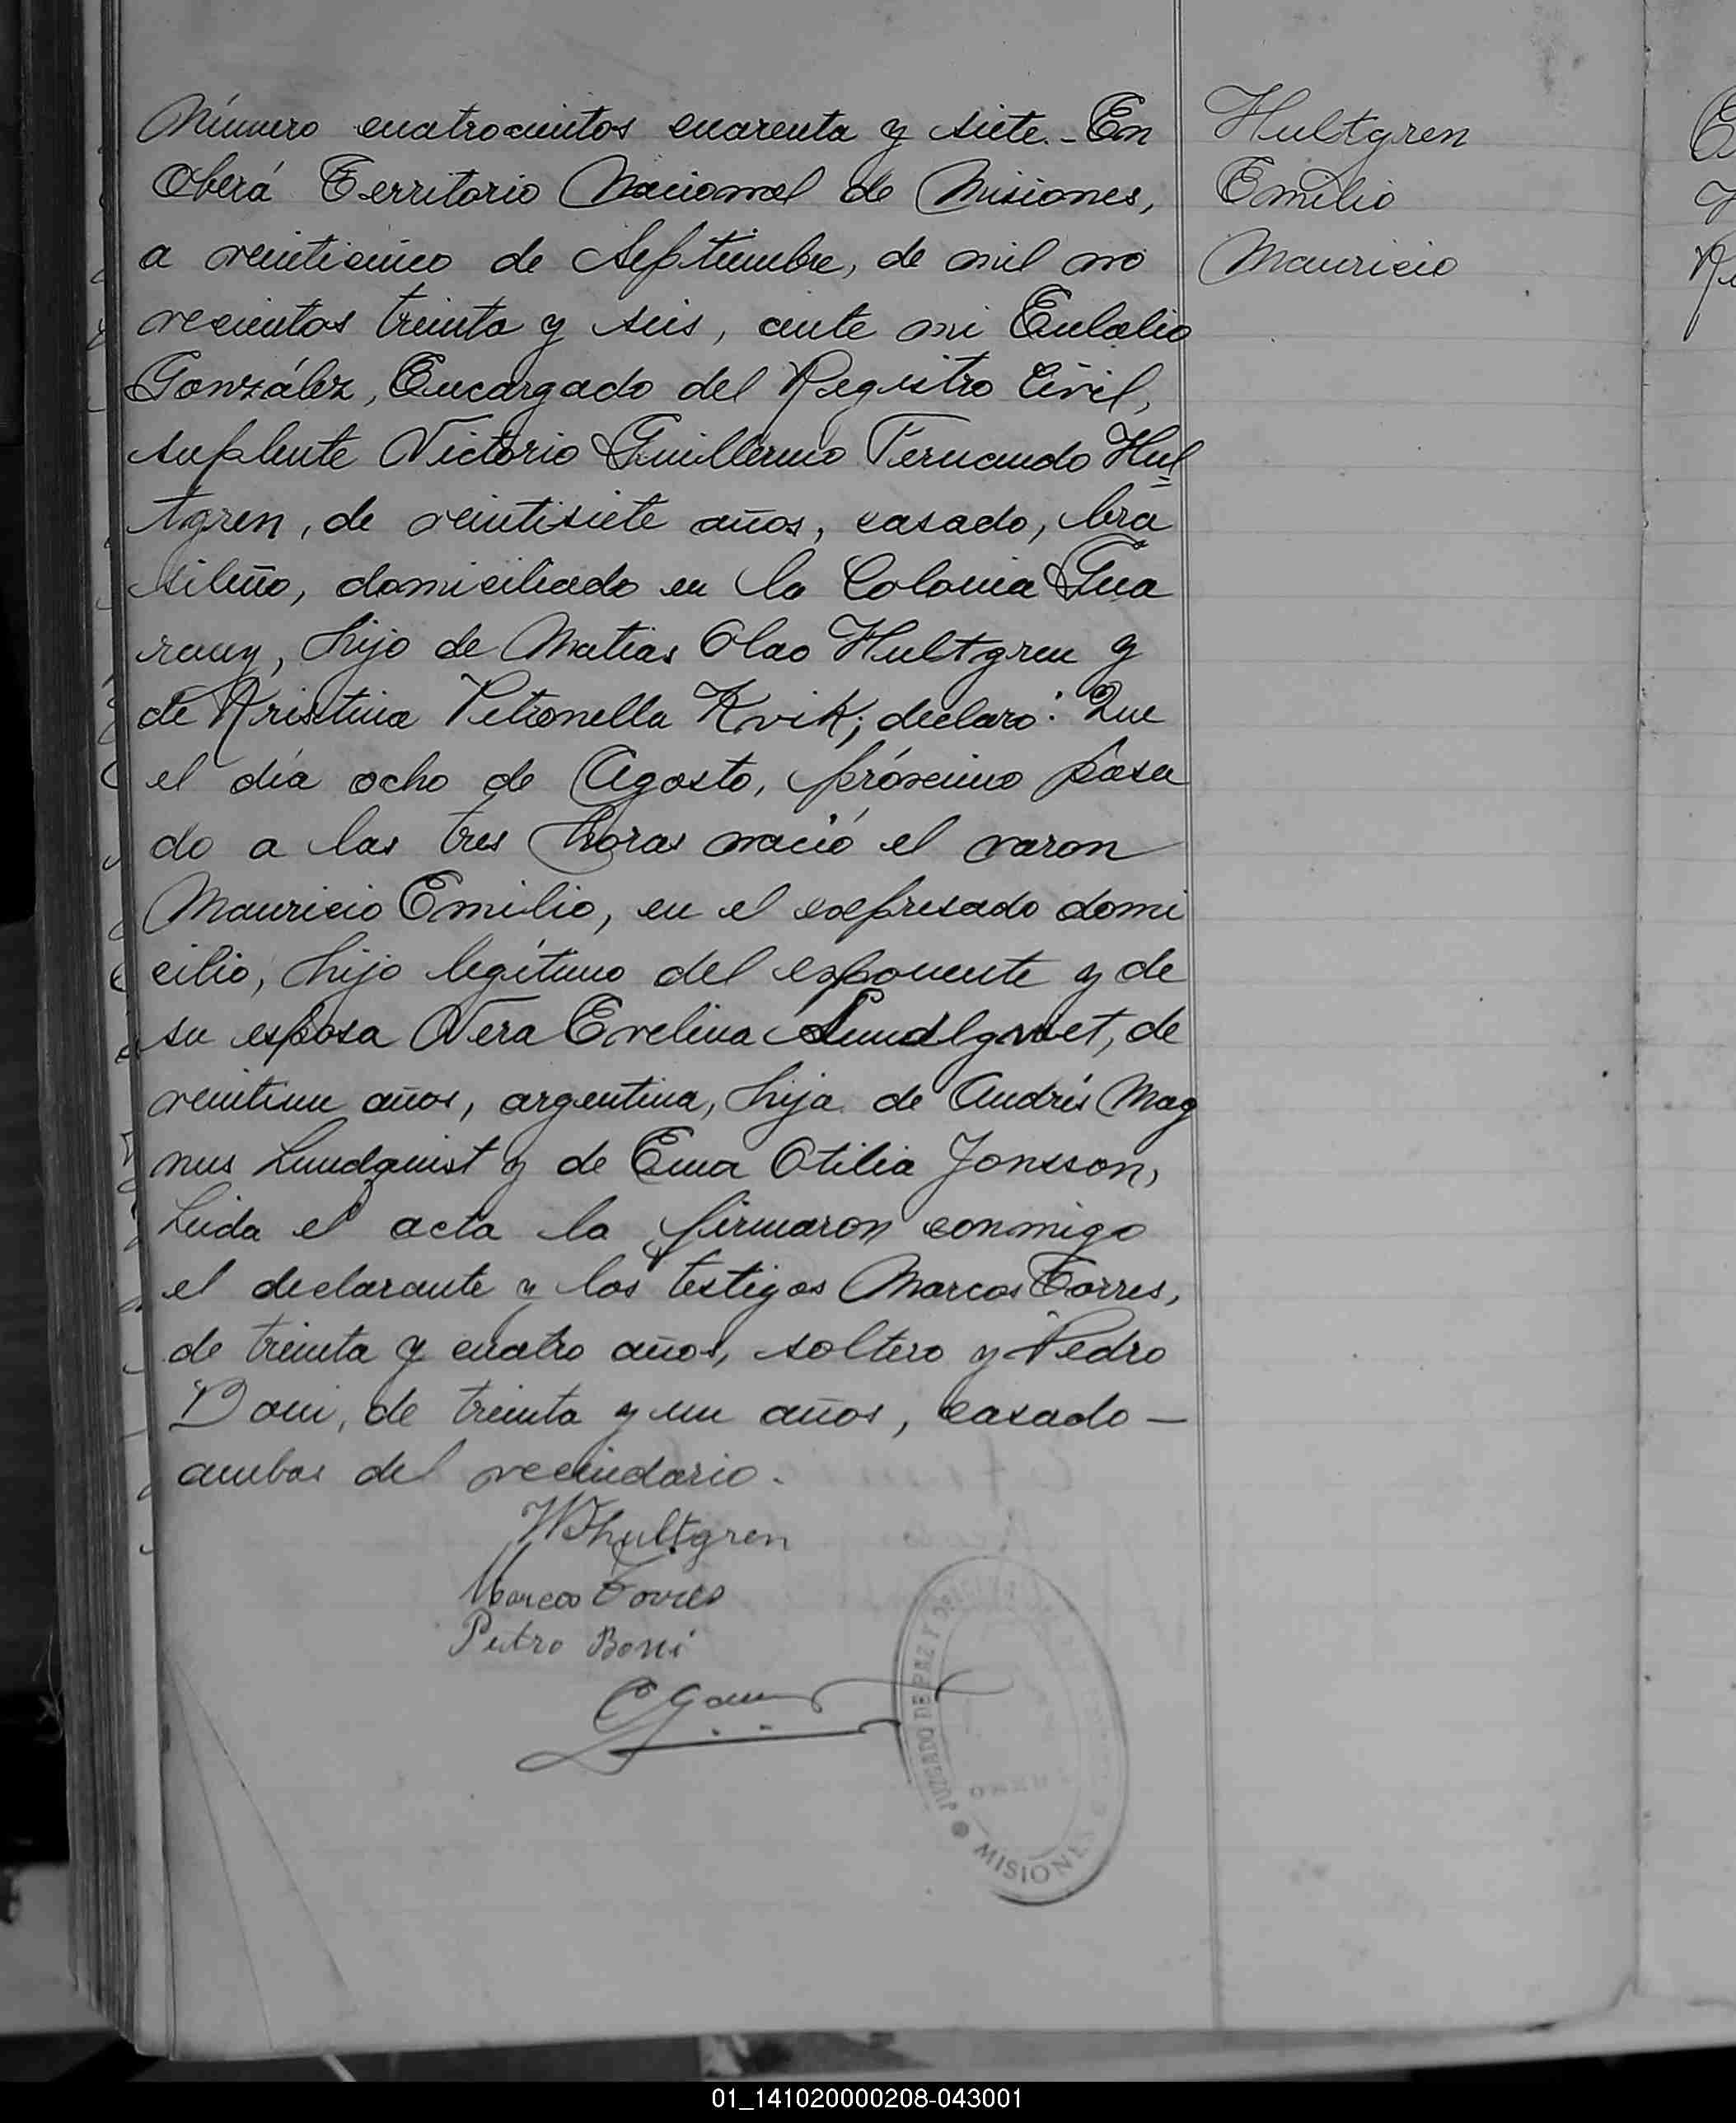 Número cuatrocientos cuarenta y siete.- En
Oberá Territorio Nacional de Misiones,
a veinticinco de Septiembre, de mil no
vecientos treinta y seis, ante mi Eulalio
González, Encargado del Registro Civil,
suplente Victorio Guillermo Fernando Hul
tgren, de veintisiete años, casado, bra
sileño, domiciliado en la Colonia Gua
rany, hijo de Matias Olao Hultgren y
de Kristina Petronella Kvik; declaro: Que
el día ocho de Agosto, próximo pasa
do a las tres horas nació el varon
Mauricio Emilio, en el expresado domi
cilio, hijo legítimo del exponente y de
su esposa Vera Evelina de
veintiun años, argentina, hija de Andrés Mag
nus Lundquist y de Ema Otilia Jonsson,
Leida el acta la firmaron conmigo
el declarante y los testigos Marcos Torres,
de treinta y cuatro años, soltero y Pedro
Boni, de treinta y un años, casado —
ambos del vecindario.
Hultgren
Emilio
Mauricio
WFhultgren
Marcos Torres
Pietro Boni
JUZGADO DE PAZ Y
MISIONES
01_141020000208-043001